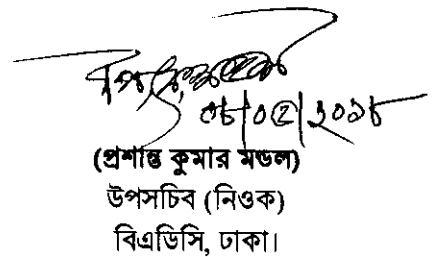 ০৮|০২|২০১৮
(প্রশান্ত কুমার মন্ডল)
উপসচিব (নিওক)
বিএডিসি, ঢাকা।